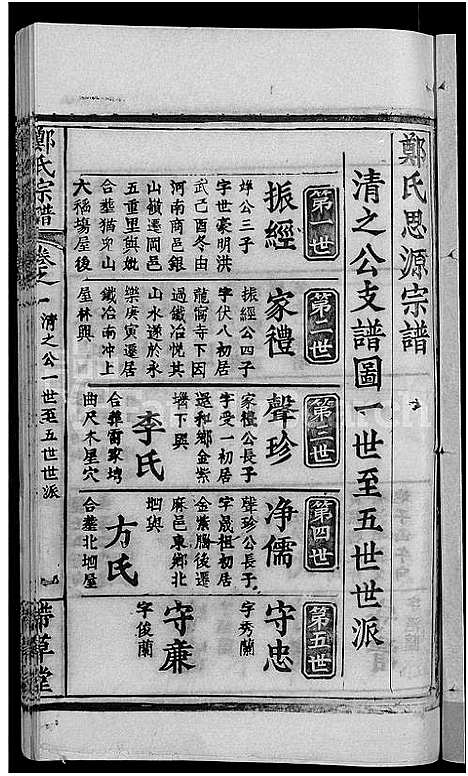 鄭氏思源宗譜
清之公支譜圖一世至五世世派
第一世
振經
烊公三子
字世豪明洪
武己酉冬由
河南商邑銀
山嶺遷岡邑
五重里與妣
合塟猫兒山
大稻場屋後
第二世
家禮
振經公四子
字伏八初居
龍甯寺下因
過鐵冶悦其
山水遂於永
樂庚寅遷居
鐵冶南冲上
屋林興
第三世
聲珍
家禮公長子
字受一初居
還和鄉金紫
塆下興
李氏
合葬雷家塆
曲尺木星穴
第四世
净儒
聲珍公長子
字晟祖初居
金紫膓後遷
麻邑東鄉北
坳與
方氏
合塟北坳屋
第五世
守忠
字秀蘭
守廉
字俊蘭
鄭氏宗譜
卷之一
清之公一世至五世世派
帶草堂